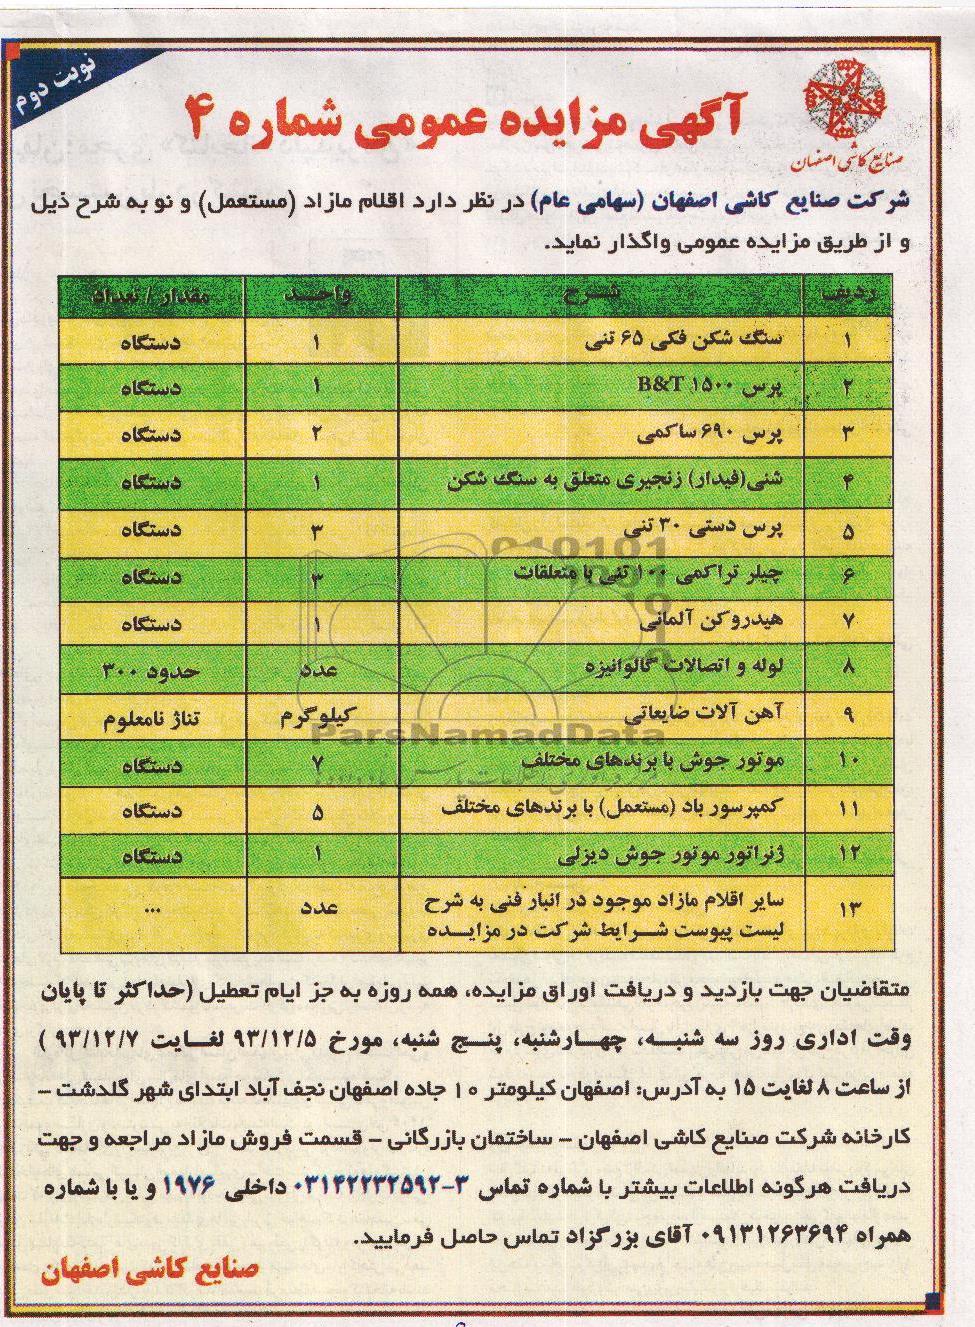 نوبت دوم
صنایع کاشی اصفهان
آگهی مزایده عمومی شماره ۴
شرکت صنایع کاشی اصفهان (سهامی عام) در نظر دارد اقلام مازاد (مستعمل) و نو به شرح ذیل
و از طریق مزایده عمومی واگذار نماید.
ردیف شرح واحد مقدار / تعداد
۱ سنگ شکن فکی ۶۵ تنی ۱ دستگاه
۲ پرس ۱۵۰۰ B&T ۱ دستگاه
۳ پرس ۶۹۰ ساکمی ۲ دستگاه
۴ شنی(فیدار) زنجیری متعلق به سنگ شکن ۱ دستگاه
۵ پرس دستی ۳۰ تنی ۳ دستگاه
۶ چیلر تراکمی ۱۰۰ تنی با متعلقات ۳ دستگاه
۷ هیدروکن آلمانی ۱ دستگاه
۸ لوله و اتصالات گالوانیزه عدد حدود ۳۰۰
۹ آهن آلات ضایعاتی کیلوگرم تناژ نامعلوم
ParsNamadData
۱۰ موتور جوش با برندهای مختلف ۷ دستگاه
۱۱ کمپرسور باد (مستعمل) با برندهای مختلف ۵ دستگاه
۱۲ ژنراتور موتور جوش دیزلی ۱ دستگاه
۱۳ سایر اقلام مازاد موجود در انبار فنی به شرح عدد ...
لیست پیوست شرایط شرکت در مزایده
متقاضیان جهت بازدید و دریافت اوراق مزایده، همه روزه به جز ایام تعطیل (حداکثر تا پایان
وقت اداری روز سه شنبه، چهارشنبه، پنج شنبه، مورخ ۹۳/۱۲/۵ لغایت ۹۳/۱۲/۷ )
از ساعت ۸ لغایت ۱۵ به آدرس: اصفهان کیلومتر ۱۰ جاده اصفهان نجف آباد ابتدای شهر گلدشت –
کارخانه شرکت صنایع کاشی اصفهان – ساختمان بازرگانی – قسمت فروش مازاد مراجعه و جهت
دریافت هرگونه اطلاعات بیشتر با شماره تماس ۳-۰۳۱۴۲۲۳۲۵۹۲ داخلی ۱۹۷۶ و یا با شماره
همراه ۰۹۱۳۱۲۶۳۶۹۴ آقای بزرگزاد تماس حاصل فرمایید.
صنایع کاشی اصفهان